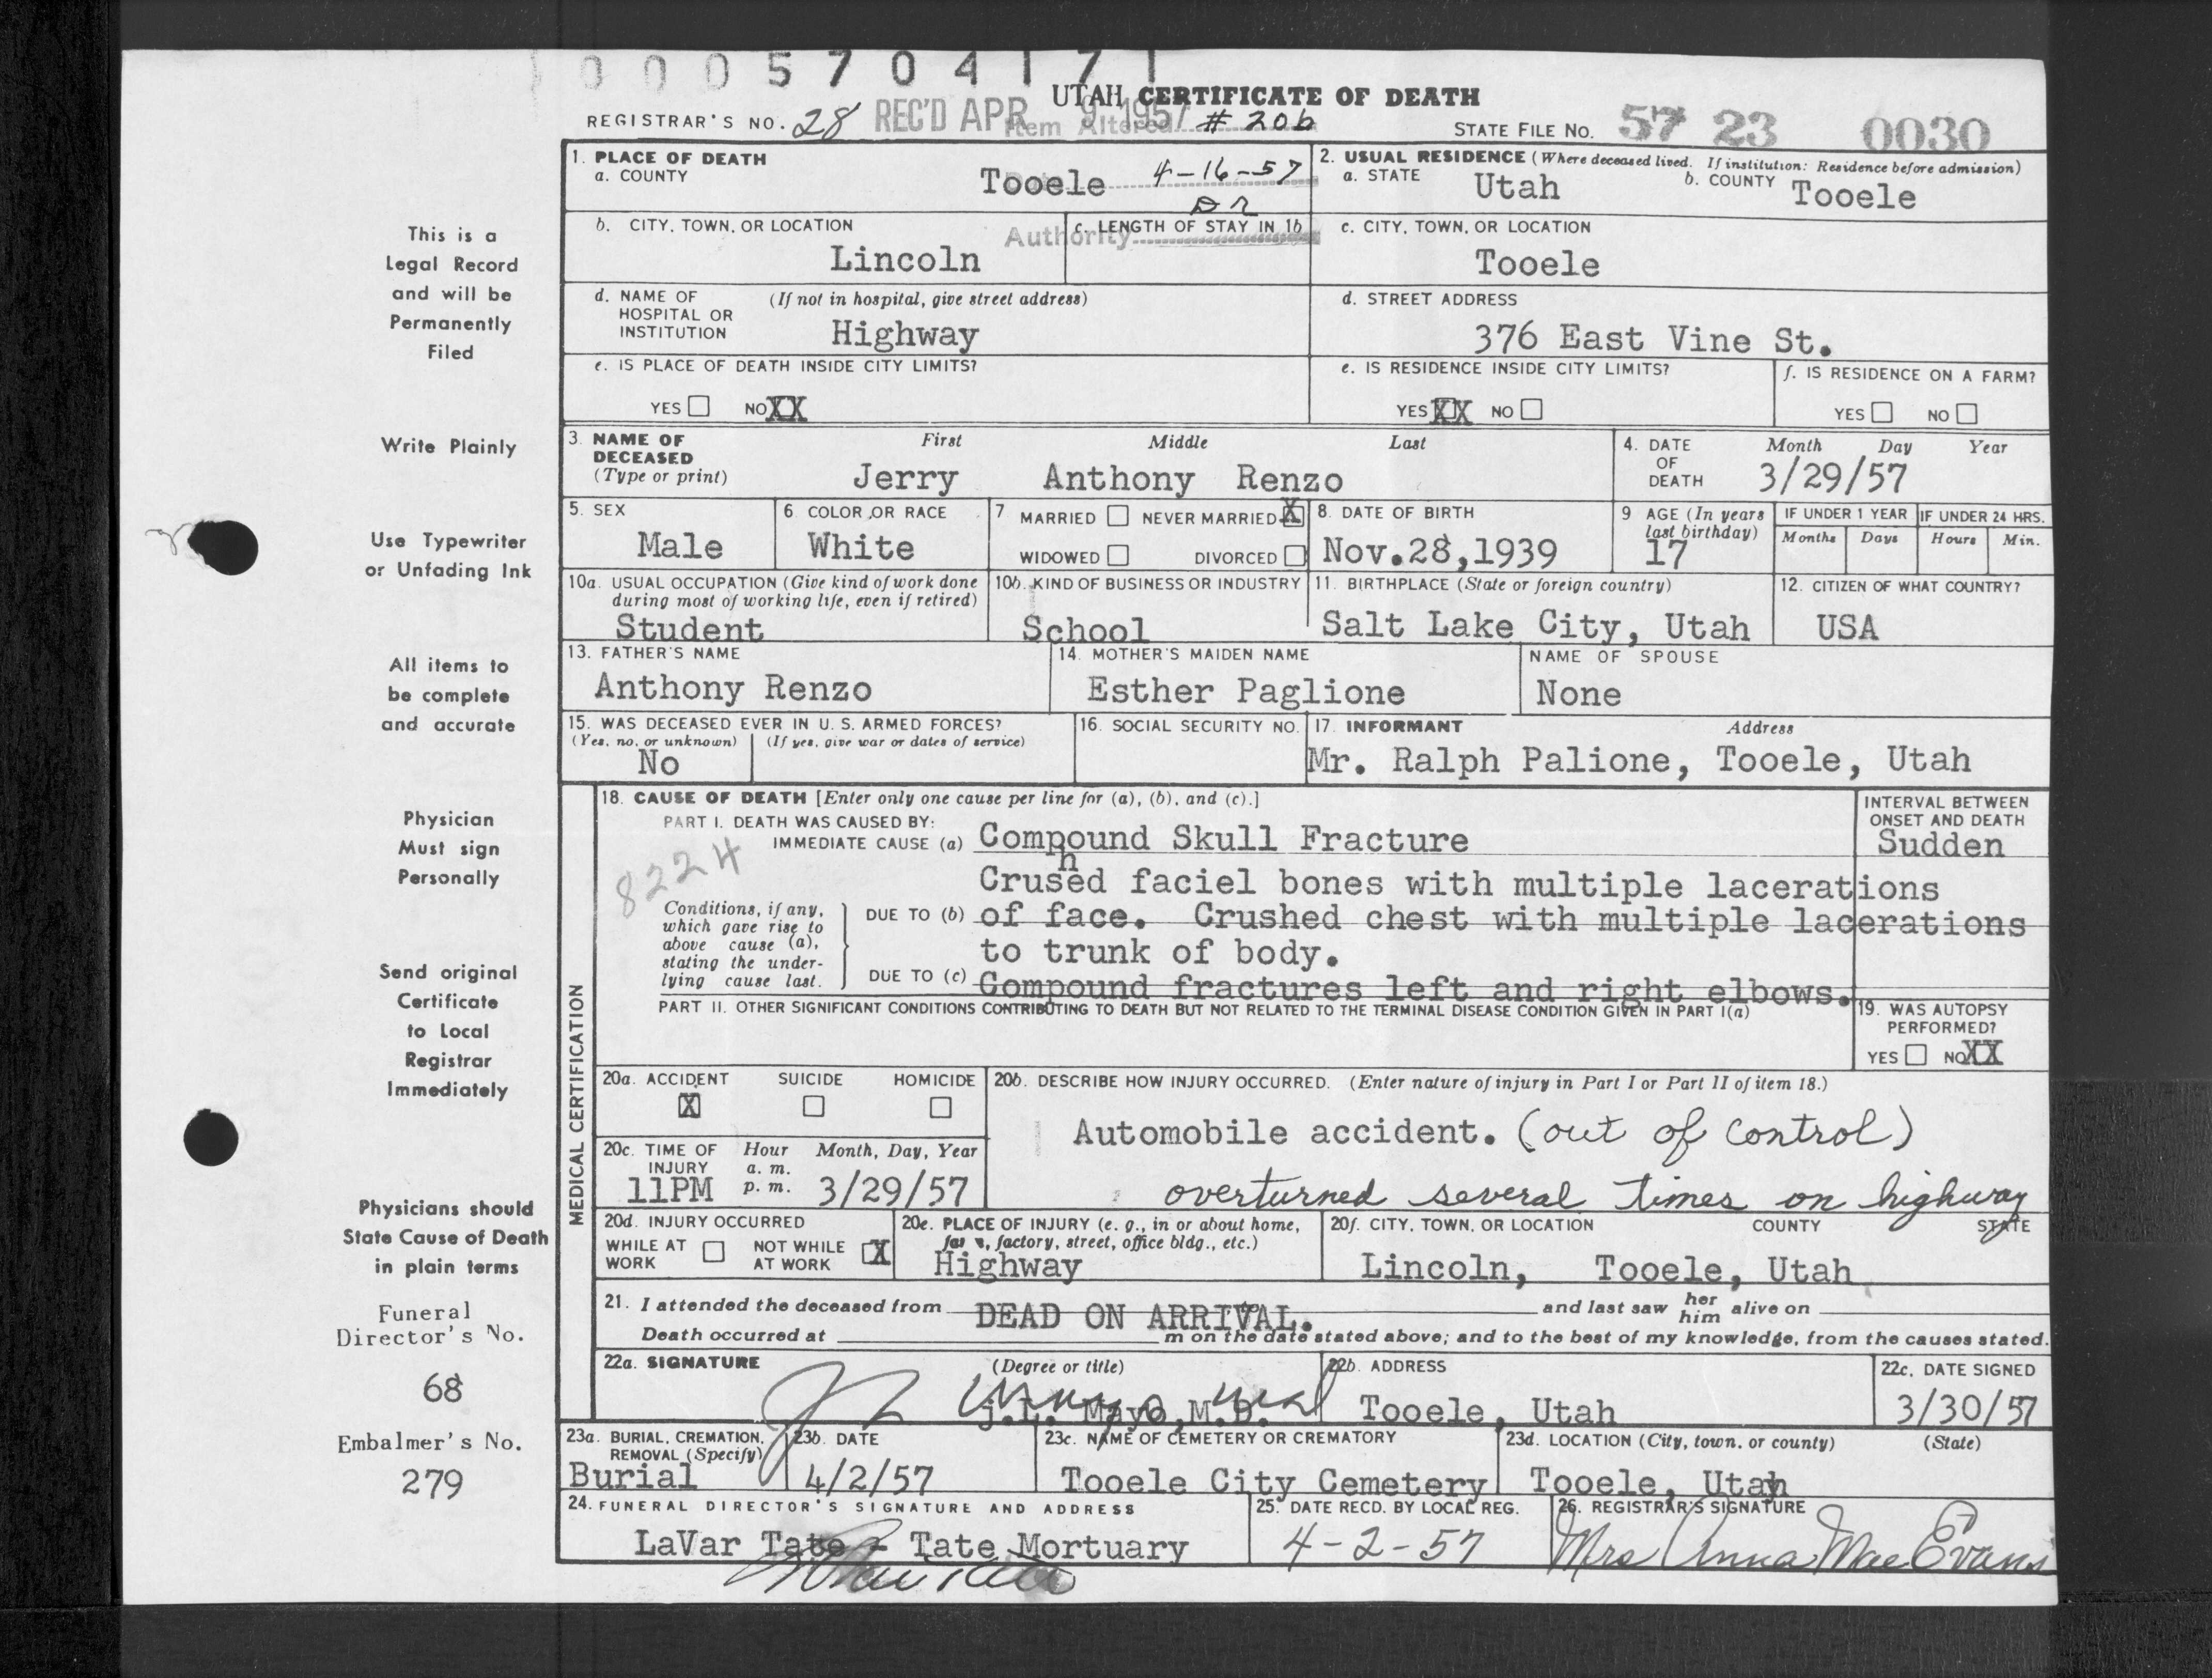 0005704171
UTAH CERTIFICATE OF DEATH
REGISTRAR'S NO. 28 REC'D APR 9 1957 Item Altered # 20b STATE FILE NO. 57 23 0030
1. PLACE OF DEATH
a. COUNTY Tooele 4-16-57
2. USUAL RESIDENCE (Where deceased lived. If institution: Residence before admission)
a. STATE Utah b. COUNTY Tooele
b. CITY, TOWN, OR LOCATION Lincoln
Authority
c. LENGTH OF STAY IN 1b
c. CITY, TOWN, OR LOCATION Tooele
d. NAME OF HOSPITAL OR INSTITUTION (If not in hospital, give street address) Highway
d. STREET ADDRESS 376 East Vine St.
e. IS PLACE OF DEATH INSIDE CITY LIMITS? YES NO XX
e. IS RESIDENCE INSIDE CITY LIMITS? YES XX NO
f. IS RESIDENCE ON A FARM? YES NO
3. NAME OF DECEASED (Type or print) First Middle Last
Jerry Anthony Renzo
4. DATE OF DEATH Month Day Year
3/29/57
5. SEX Male
6. COLOR OR RACE White
7 MARRIED NEVER MARRIED X
WIDOWED DIVORCED
8. DATE OF BIRTH Nov.28,1939
9 AGE (In years last birthday) 17
IF UNDER 1 YEAR Months Days
IF UNDER 24 HRS. Hours Min.
10a. USUAL OCCUPATION (Give kind of work done during most of working life, even if retired) Student
10b. KIND OF BUSINESS OR INDUSTRY School
11. BIRTHPLACE (State or foreign country) Salt Lake City, Utah
12. CITIZEN OF WHAT COUNTRY? USA
13. FATHER'S NAME Anthony Renzo
14. MOTHER'S MAIDEN NAME Esther Paglione
NAME OF SPOUSE None
15. WAS DECEASED EVER IN U. S. ARMED FORCES?
(Yes, no, or unknown) (If yes, give war or dates of service)
No
16. SOCIAL SECURITY NO.
17. INFORMANT Address
Mr. Ralph Palione, Tooele, Utah
MEDICAL CERTIFICATION
18. CAUSE OF DEATH [Enter only one cause per line for (a), (b), and (c).]
PART I. DEATH WAS CAUSED BY:
IMMEDIATE CAUSE (a) Compound Skull Fracture
INTERVAL BETWEEN ONSET AND DEATH
Sudden
8224
Crushed faciel bones with multiple lacerations
Conditions, if any, which gave rise to above cause (a), stating the under-lying cause last.
DUE TO (b) of face. Crushed chest with multiple lacerations
to trunk of body.
DUE TO (c) Compound fractures left and right elbows.
PART II. OTHER SIGNIFICANT CONDITIONS CONTRIBUTING TO DEATH BUT NOT RELATED TO THE TERMINAL DISEASE CONDITION GIVEN IN PART I(a)
19. WAS AUTOPSY PERFORMED?
YES NO XX
20a. ACCIDENT X SUICIDE HOMICIDE
20b. DESCRIBE HOW INJURY OCCURRED. (Enter nature of injury in Part I or Part II of item 18.)
Automobile accident. (out of control)
overturned several times on highway
20c. TIME OF INJURY Hour a. m. p. m. Month, Day, Year
11PM 3/29/57
20d. INJURY OCCURRED
WHILE AT WORK NOT WHILE AT WORK X
20e. PLACE OF INJURY (e. g., in or about home, farm, factory, street, office bldg., etc.)
Highway
20f. CITY, TOWN, OR LOCATION COUNTY STATE
Lincoln, Tooele, Utah
21. I attended the deceased from DEAD ON ARRIVAL. and last saw her him alive on
Death occurred at m on the date stated above; and to the best of my knowledge, from the causes stated.
22a. SIGNATURE (Degree or title)
J.L. Mayo, M.D.
22b. ADDRESS Tooele, Utah
22c. DATE SIGNED 3/30/57
23a. BURIAL, CREMATION, REMOVAL (Specify) Burial
23b. DATE 4/2/57
23c. NAME OF CEMETERY OR CREMATORY Tooele City Cemetery
23d. LOCATION (City, town, or county) (State)
Tooele, Utah
24. FUNERAL DIRECTOR'S SIGNATURE AND ADDRESS
LaVar Tate - Tate Mortuary
25. DATE RECD. BY LOCAL REG. 4-2-57
26. REGISTRAR'S SIGNATURE
Mrs Anna Mae Evans
This is a
Legal Record
and will be
Permanently
Filed
Write Plainly
Use Typewriter
or Unfading Ink
All items to
be complete
and accurate
Physician
Must sign
Personally
Send original
Certificate
to Local
Registrar
Immediately
Physicians should
State Cause of Death
in plain terms
Funeral
Director's No.
68
Embalmer's No.
279